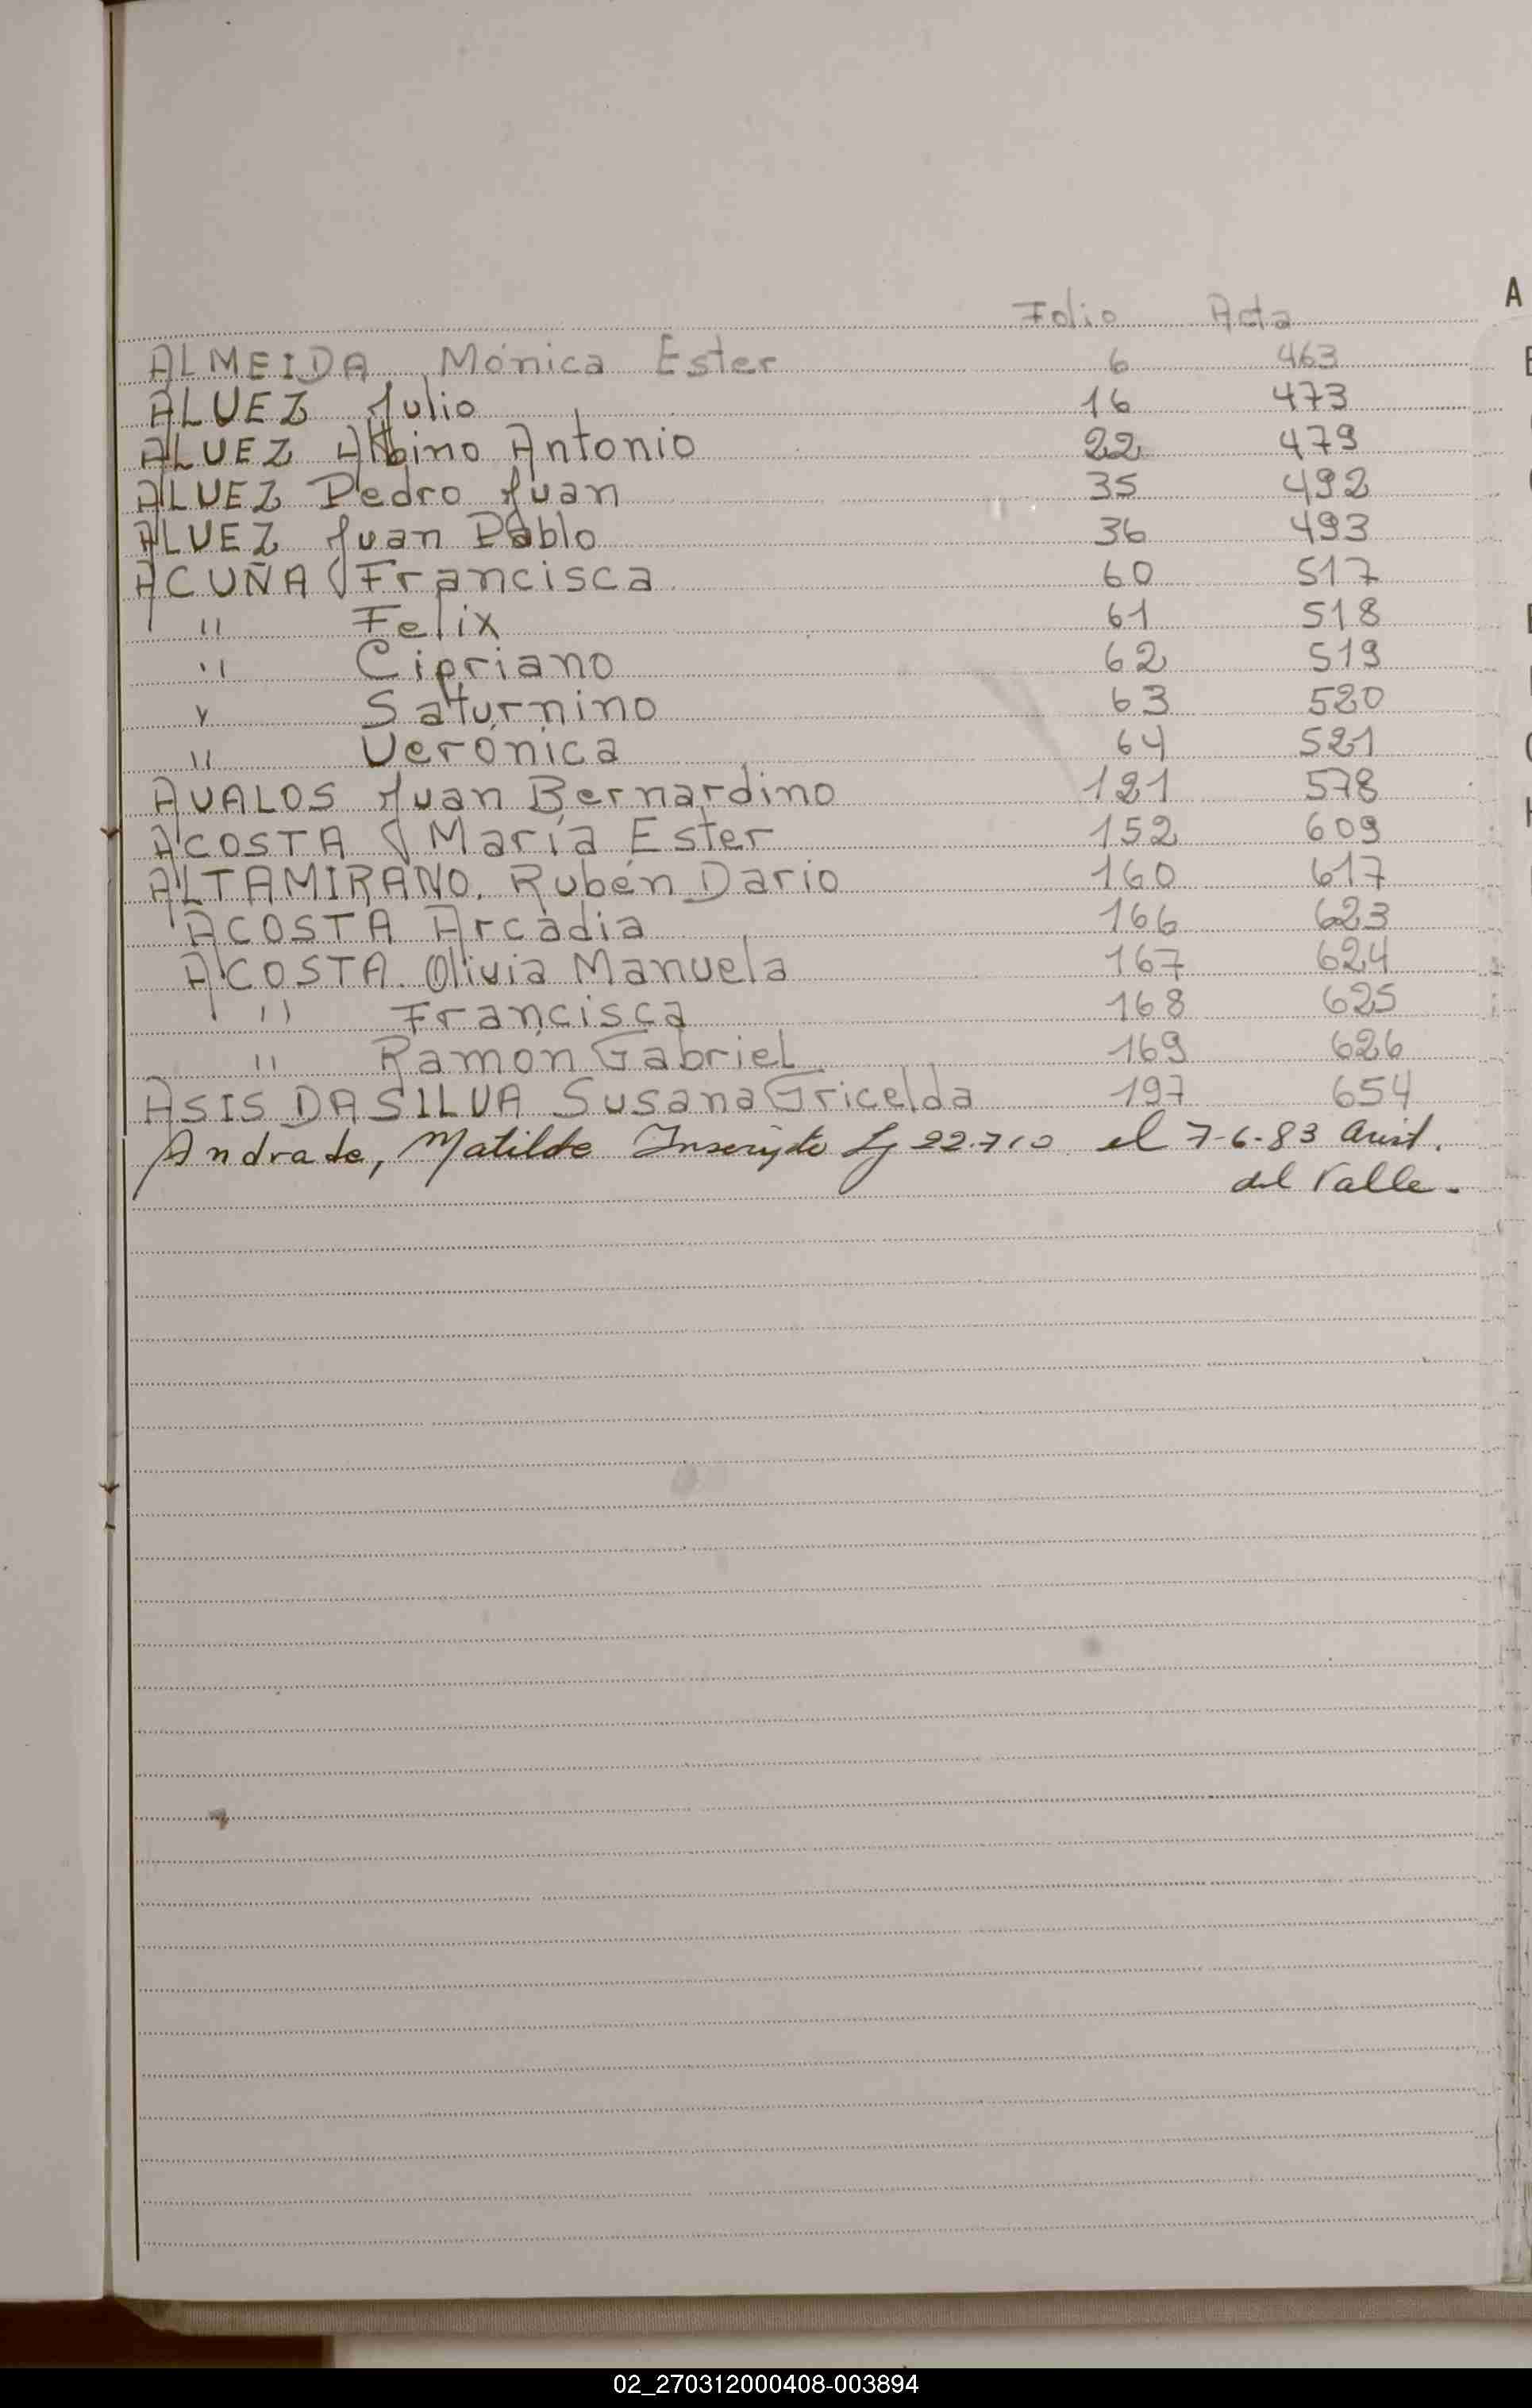 A
Folio Acta
ALMEIDA Mónica Ester 6 463
ALUEZ Julio 16 473
ALUEZ Albino Antonio 22 479
ALUEZ Pedro Juan 35 492
ALUEZ Juan Pablo 36 493
ACUÑA Francisca 60 517
" Felix 61 518
" Cipriano 62 519
" Saturnino 63 520
" Verónica 64 521
AUALOS Juan Bernardino 121 578
ACOSTA María Ester 152 609
ALTAMIRANO. Rubén Dario 160 617
ACOSTA Arcadia 166 623
ACOSTA. Olivia Manuela 167 624
" Francisca 168 625
" Ramón Gabriel 169 626
ASIS DASILUA Susana Gricelda 197 654
Andrade, Matilde Inscripto 22.710 el 7-6-83 Arist.
del Valle.
02_270312000408-003894